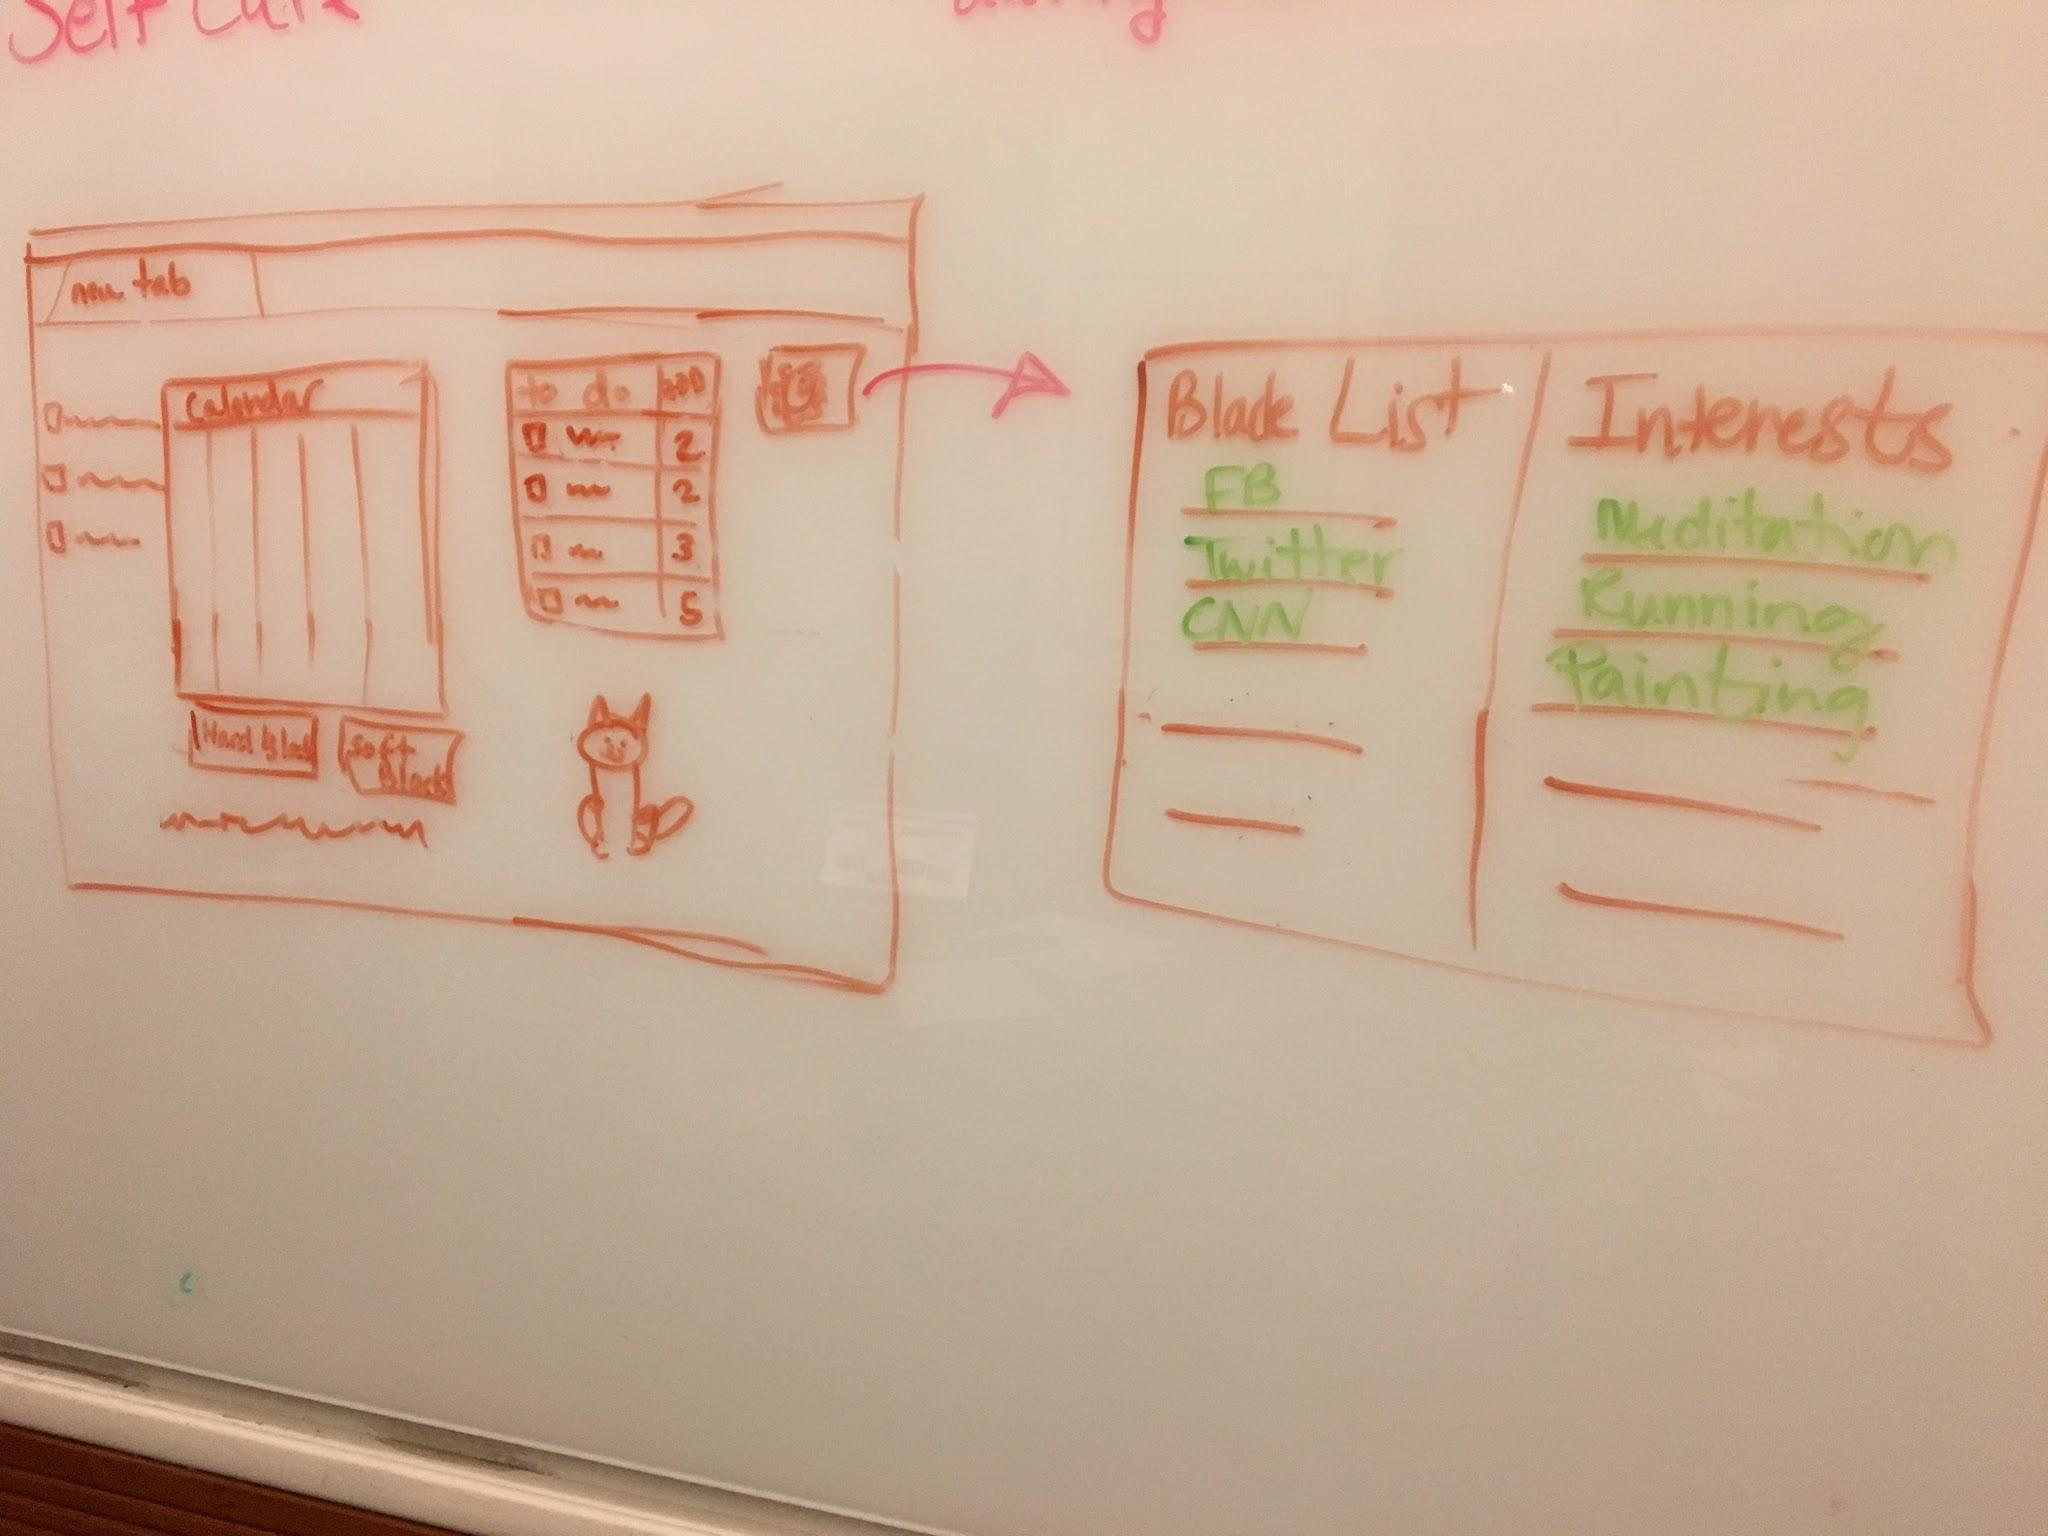 Self Care
new tab
Calendar
to do
2
2
3
5
Hard Block
Soft
Block
Black List
FB
Twitter
CNN
Interests
Meditation
Running
Painting